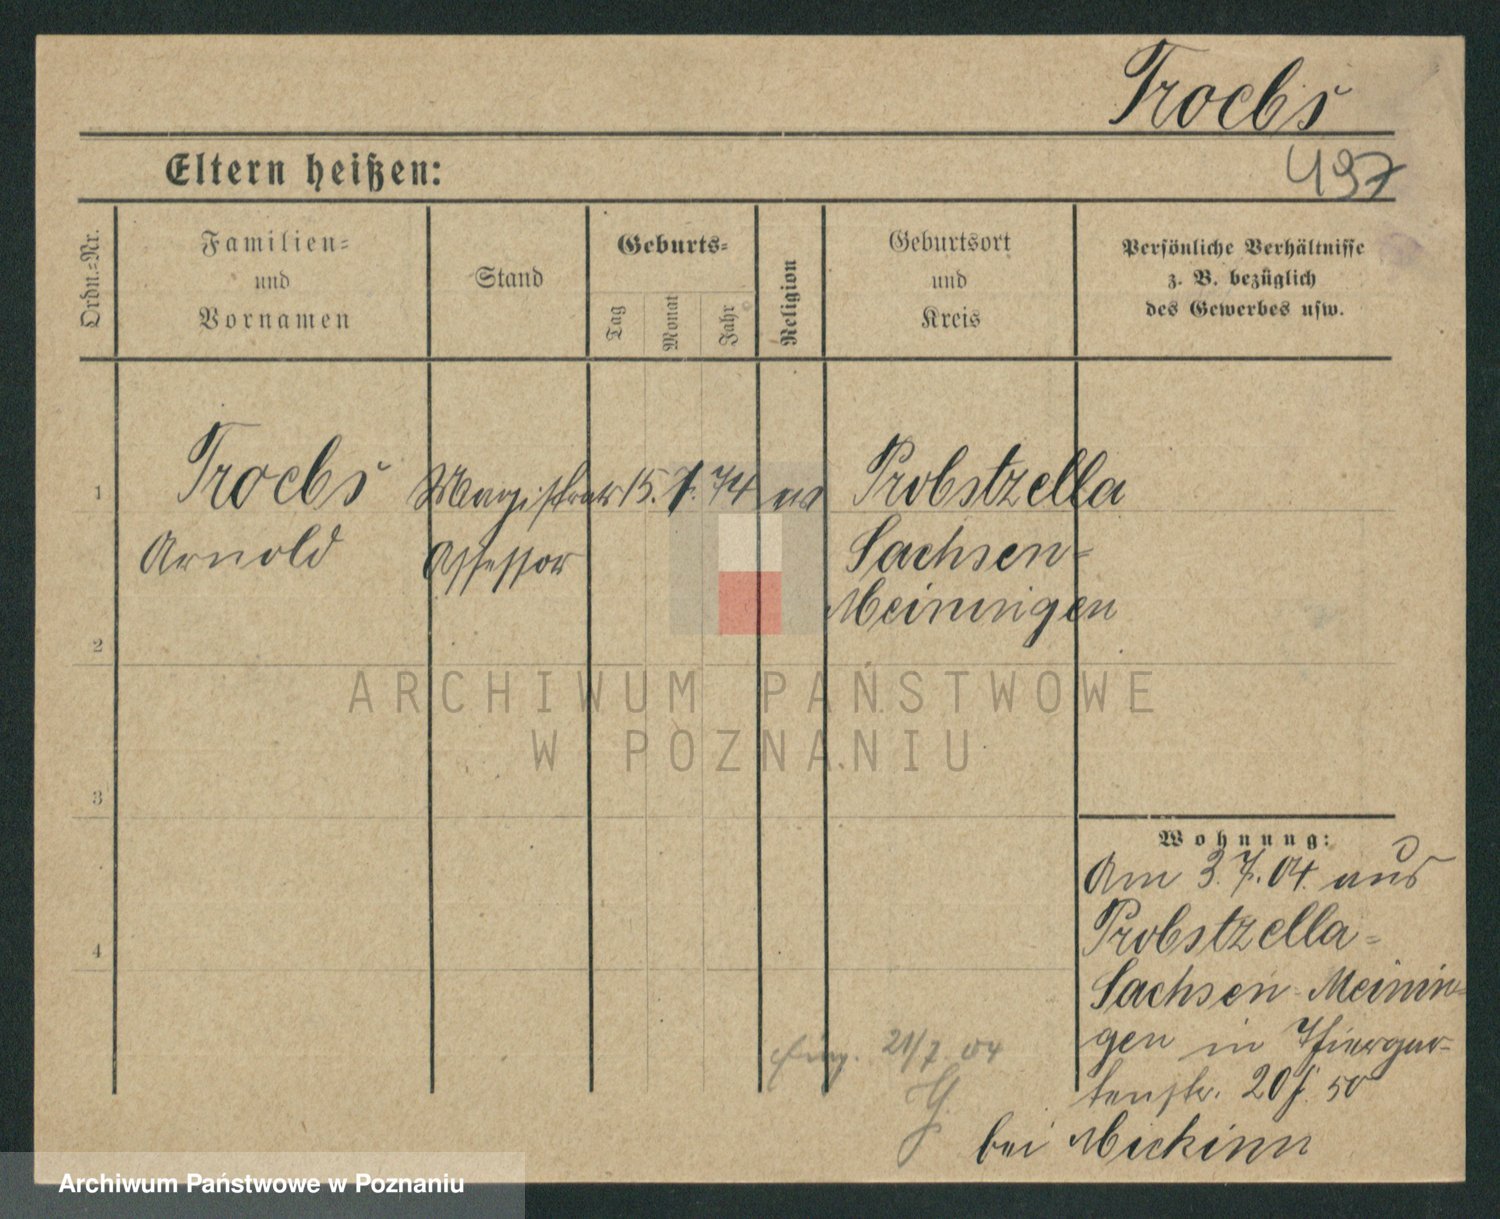 Troebs
497
Eltern heißen:
Ordn.=Nr.
Familien=
und
Vornamen
Stand
Geburts=
Tag
Monat
Jahr
Religion
Geburtsort
und
Kreis
Persönliche Verhältnisse
z. B. bezüglich
des Gewerbes usw.
1 Troebs Magistrats 15. 7. 74 Probstzella
Arnold Assessor Sachsen-
Meiningen
2
ARCHIWUM PAŃSTWOWE
W POZNANIU
3
Wohnung:
Am 3.7.04. aus
Probstzella-
Sachsen-Meinin-
4
gen in Thiergar-
tenstr.
21/7 04
bei
Archiwum Państwowe w Poznaniu